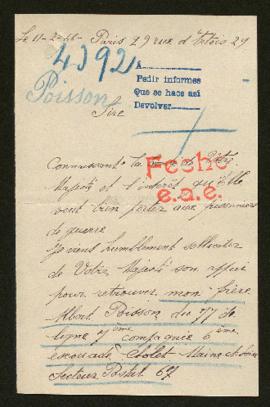 Le 11-2-16- Paris 29 rue d' 29
4392
Poisson
A
Pedir informes
Que se haces así
Devolver
Sire
Connaissant la de Votre
Fecho
e.a.e.
Majesté et l'intérêt qu'Elle
veut bien porter aux prisonniers
de guerre
Je viens humblement solliciter
de Votre Majesté son appui
pour retrouver mon frère
Albert Poisson du 77 de
ligne 7ème compagnie 6ème
escouade Cholet Maine et Loire
Secteur Postal 69